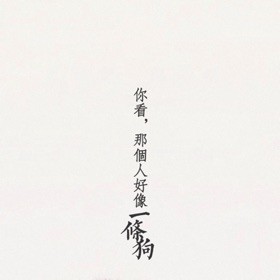 你看，那個人好像一條狗